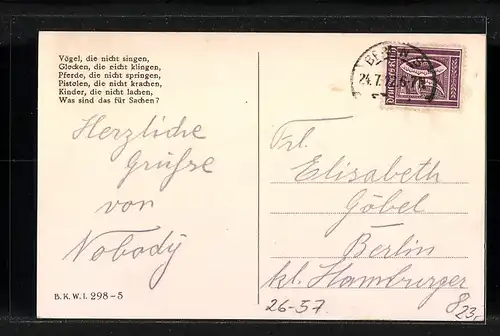 Vögel, die nicht singen,
Glocken, die nicht klingen,
Pferde, die nicht springen,
Pistolen, die nicht krachen,
Kinder, die nicht lachen,
Was sind das für Sachen?
Herzliche
Grüsse
von
Nobody
B.K.W.I. 298-5
BERLIN
24.7.
Frl.
Elisabeth
Göbel
Berlin
kl. Hamburger
823,
26-57